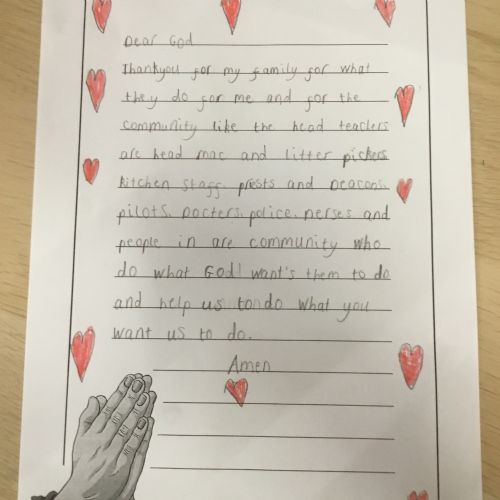 Dear God
Thankyou for my family for what
they do for me and for the
community like the head teachers
are head mac and litter pickers
kitchen staff, prests and Deacons,
pilots, Docters, police, nerses and
people in are community who
do what God want's them to do
and help us to do what you
want us to do.
Amen